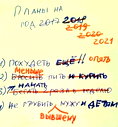 ПЛАНЫ НА
ГОД 2017 2018
2019
2020
2021
1) ПОХУДЕТЬ ЕЩЁ!! опять
МЕНЬШЕ
2) БРОСИТЬ ПИТЬ И КУРИТЬ
НАЧАТЬ
3)
4) НЕ ГРУБИТЬ МУЖУ И ДЕТЯМ
БЫВШЕМУ